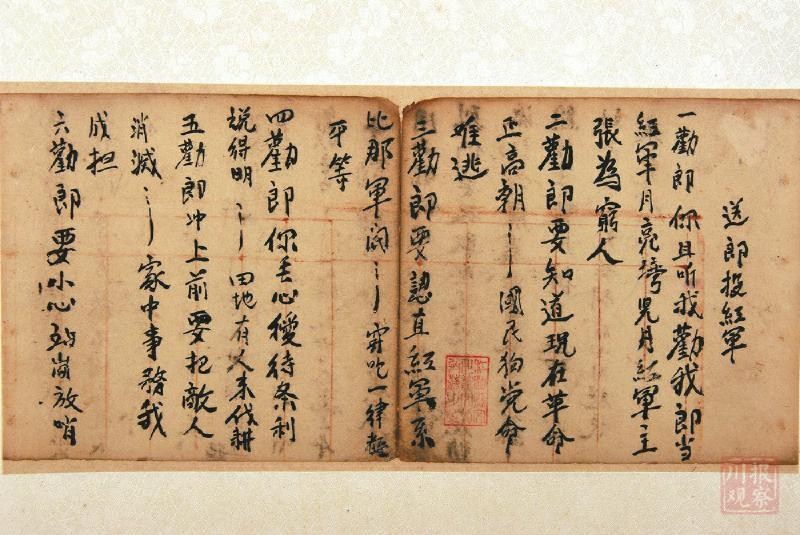 送郎投紅軍
一勸郎你且听我勸我郎当
紅軍月亮湾児月紅軍主
張為窮人
二勸郎要知道现在革命
正高朝々々國民狗党命
难逃
三勸郎要認真紅軍系
比那軍阀々々穿吃一律
平等
四勸郎你丢心優待条利
说得明々々田地有人來伐耕
五勸郎冲上前要把敵人
消滅々々家中事務我
成担
六勸郎要小心站崗放哨
川报观察